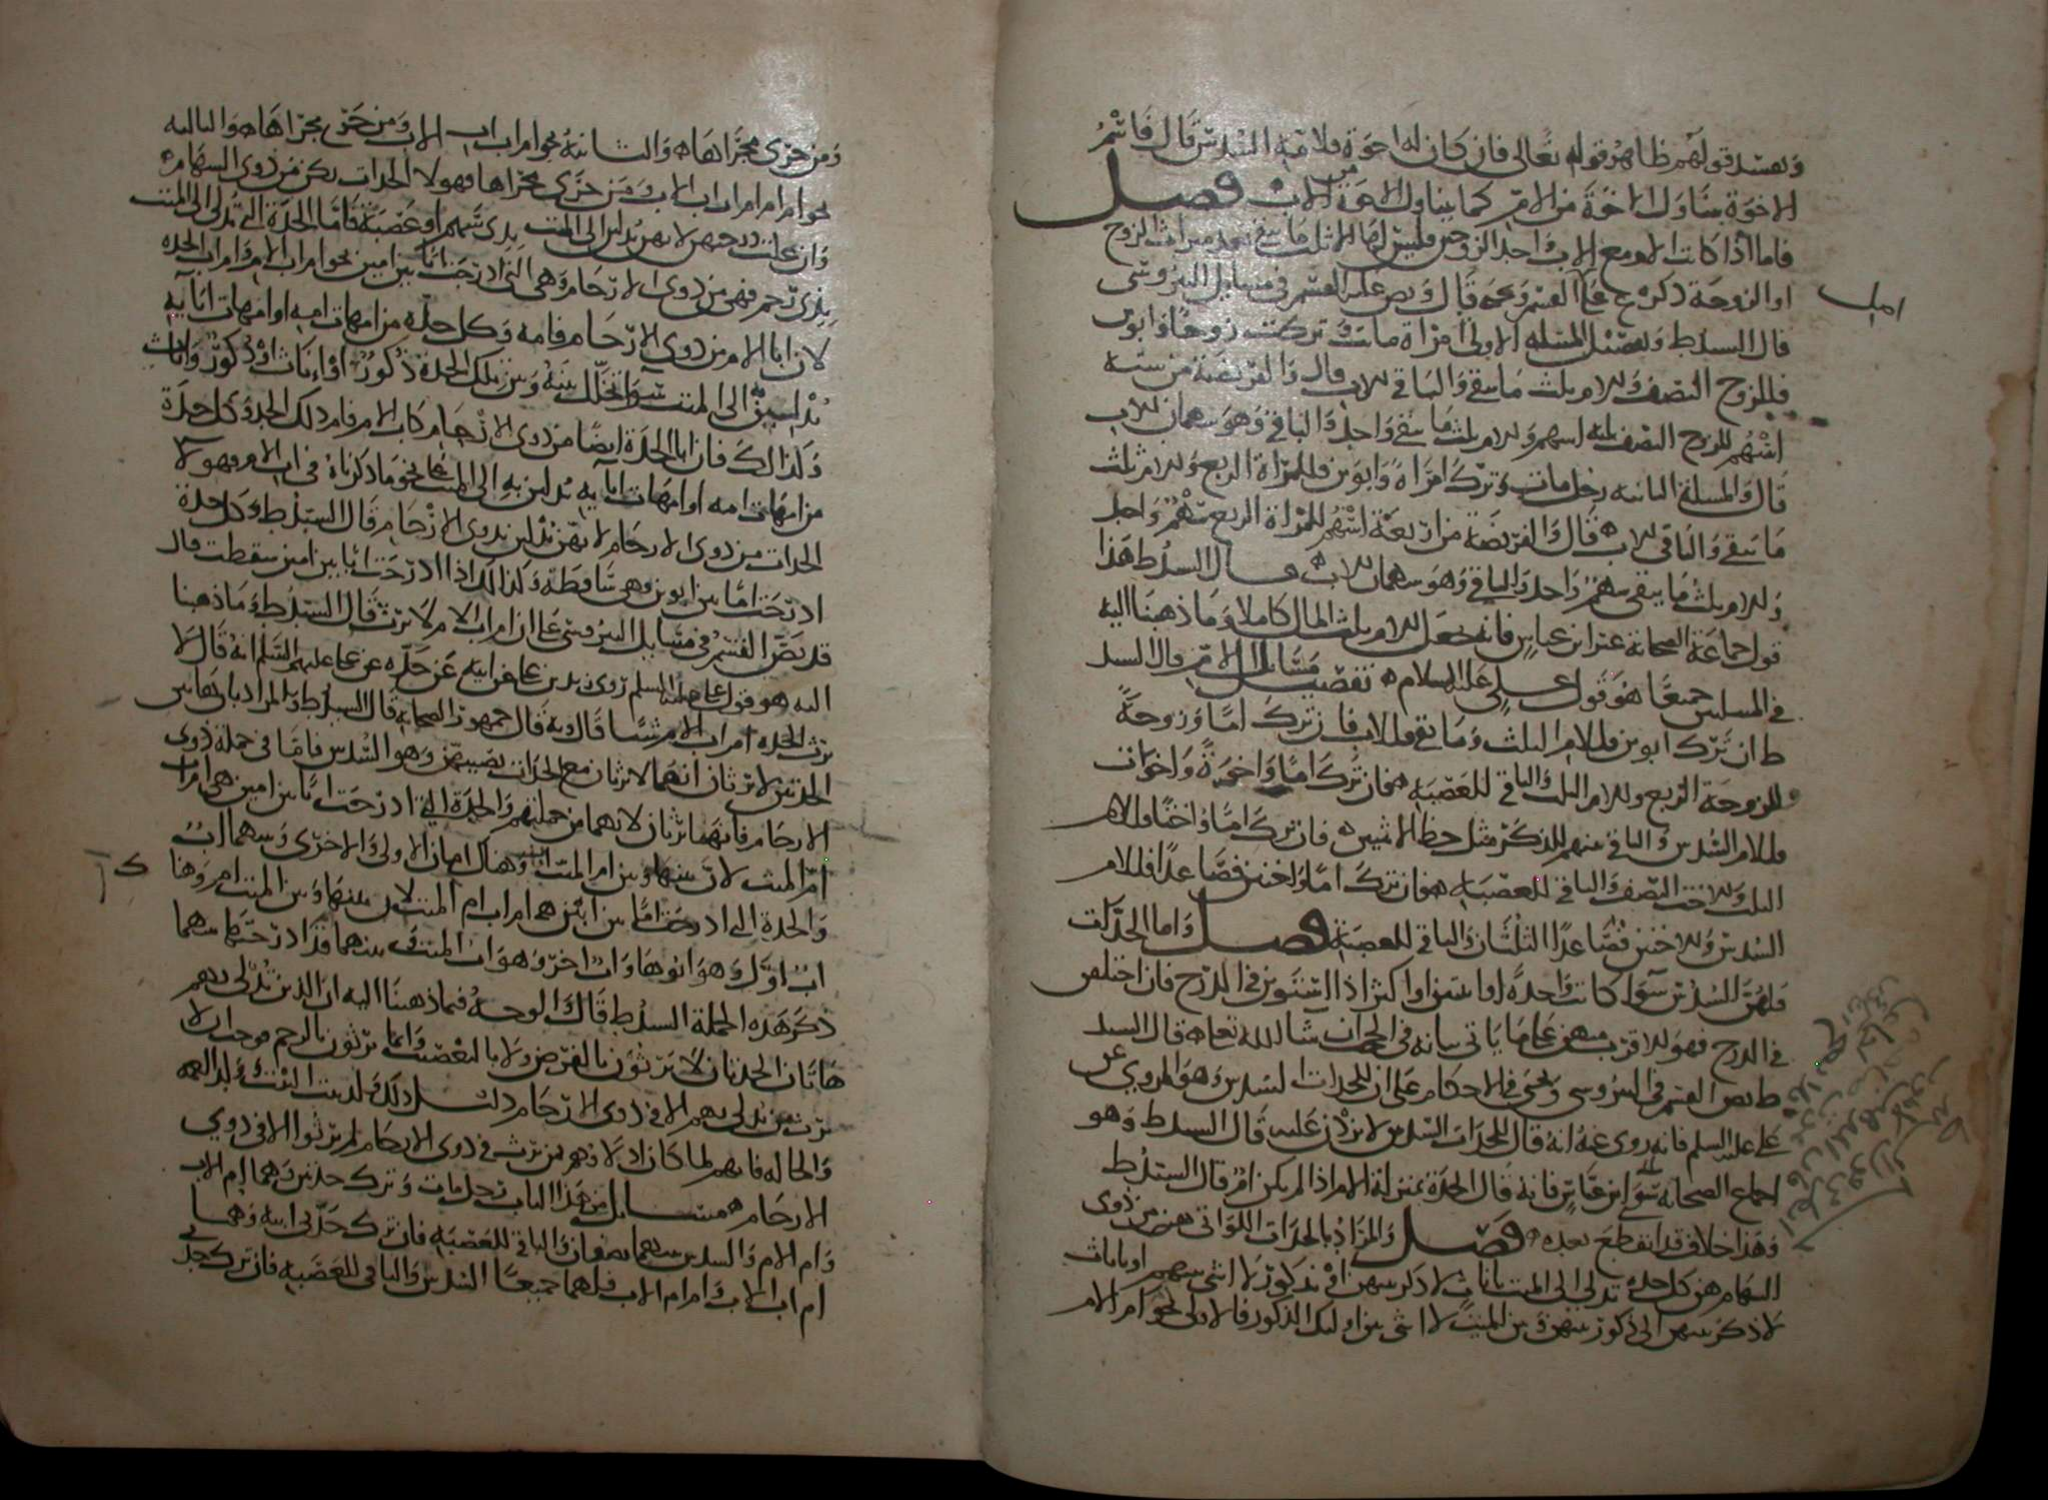 ويفسد قولهم ظاهر قوله تعالى فان كان له اخوة فلامه السدس قال فاسم
الاخوة يتناول الاخوة من الام كما يتناول الاخوة من الاب فصل
فاما اذا كانت الام مع الاب واحد الزوجين فليس لها الا ثلث ما يبقى بعد ميراث الزوج
او الزوجة ذكره القسم ويحيى قال ونص عليه القسم في مسايل النيروسي
قال السيد ط وتفصيل المسئلة الاولى امراة ماتت وتركت زوجا وابوين
فللزوج النصف وللام ثلث ما يبقى والباقي للاب قال والفريضة من ستة
اسهم للزوج النصف ثلثه اسهم وللام ثلث ما يبقى واحد والباقي وهو سهمان للاب
قال والمسلة الثانية رجل مات وترك امراة وابوين فللمراة الربع وللام ثلث
ما يبقى والباقي للاب قال والفريضة من اربعة اسهم للمراة الربع سهم واحد
وللام ثلث ما يبقى سهم واحد والباقي وهو سهمان للاب قال السيد ط هذا
قول جماعة الصحابة غير ابن عباس فانه جعل للام ثلث المال كاملا وما ذهبنا اليه
في المسلتين جميعا هو قول علي عليه السلام تفصيل مسايل الام قال السيد
ط ان ترك ابوين فللام الثلث وما بقي فللاب فان ترك اما وزوجة
فللزوجة الربع وللام الثلث والباقي للعصبة فان ترك اما واخوة واخوات
فللام السدس والباقي بينهم للذكر مثل حظ الانثيين فان ترك اما واختا فللام
الثلث وللاخت النصف والباقي للعصبة فان ترك اما واختين فصاعدا فللام
السدس وللاختين فصاعدا الثلثان والباقي للعصبة فصل واما الجدات
فلهن السدس سوا كانت واحدة او اثنتين او اكثر اذا استوين في الدرج فان اختلفن
في الدرج فهو للاقرب منهن على ما ياتي بيانه في الحجب ان شا الله تعالى قال السيد
ط نص القسم في النيروسي ويحيى في الاحكام على ان للجدات السدس وهو المروي عن
علي عليه السلم فانه روي عنه انه قال للجدات السدس لا يزدن عليه قال السيد ط وهو
اجماع الصحابة سوى ابن عباس فانه قال الجدة بمنزلة الام اذا لم يكن ام قال السيد ط
وهذا خلاف قد انقطع بعده فصل والمراد بالجدات اللواتي هن من ذوي
السهام هن كل جدة تدلي الى الميت باناث لا ذكر بينهن او بذكور لا انثى بينهم او باناث
لا ذكر بينهن الى ذكور بينهن وبين الميت لا انثى بين اوليك الذكور فالاولى نحو ام الام
ومن جرى مجراها والثانية نحو ام اب الاب ومن جرى مجراها والثالثة
نحو ام ام ام اب الاب ومن جرى مجراها فهولا الجدات يكن من ذوي السهام
وان علت درجتهن لانهن يدلين الى الميت بذي سهم او عصبة فاما الجدة التي تدلي الى الميت
بذي رحم فهي من ذوي الارحام وهي التي ادرجت ابا بين امين نحو ام اب الام وام اب الجدة
لان ابا الام من ذوي الارحام فامه وكل جدة من امهات امه او امهات ابايه
يدلين به الى الميت سوا تخلل بينه وبين تلك الجدة ذكور او اناث او ذكور واناث
وكذلك فان ابا الجدة ايضا من ذوي الارحام كاب الام فام ذلك الجد وكل جدة
من امهات امه او امهات ابايه يدلين به الى الميت على نحو ما ذكرناه في اب الام فهولا
الجدات من ذوي الارحام لانهن يدلين بذوي الارحام قال السيد ط وكل جدة
ادرجت اما بين ابوين فهي ساقطة وكذلك اذا ادرجت ابا بين امين سقطت قال
قد نص القسم في مسايل النيروسي على ان ام اب الام لا ترث قال السيد ط وما ذهبنا
اليه هو قول علي عليه السلم روى زيد بن علي عن ابيه عن جده عن علي عليهم السلم انه قال لا
ترث الجدة ام اب الام شيئا قال وبه قال جمهور الصحابة قال السيد ط والمراد بان هاتين
الجدتين لا ترثان انهما لا ترثان مع الجدات نصيبهن وهو السدس فاما في جملة ذوي
الارحام فانهما ترثان لانهما من جملتهم والجدة التي ادرجت ابا بين امين هي ام اب
ام الميت لان بينها وبين ام الميت اب وهناك امان الاولى والاخرى وبينهما اب
والجدة التي ادرجت اما بين ابين هي ام اب ام الميت لان بينها وبين الميت ام وهنا
اب اول وهو ابوها واب اخر وهو اب الميت بينهما قد ادرجت اما بينهما
ذكر هذه الجملة السيد ط قال والوجه فيما ذهبنا اليه ان الذين تدلي بهم
هاتان الجدتان لا يرثون بالفرض ولا بالتعصيب وانما يرثون بالرحم فوجب ان لا
ترث من تدلي بهم الا في ذوي الارحام دليل ذلك ولد بنت البنت وولد العمة
والخالة فانهم لما كان اولادهم ممن يرث في ذوي الارحام لم يرثوا الا في ذوي
الارحام مسايل من هذا الباب رجل مات وترك جدتين وهما ام الاب
وام الام والسدس بينهما نصفان والباقي للعصبة فان ترك جدتي ابيه وهما
ام اب الاب وام ام الاب فلهما جميعا السدس والباقي للعصبة فان ترك جدتي